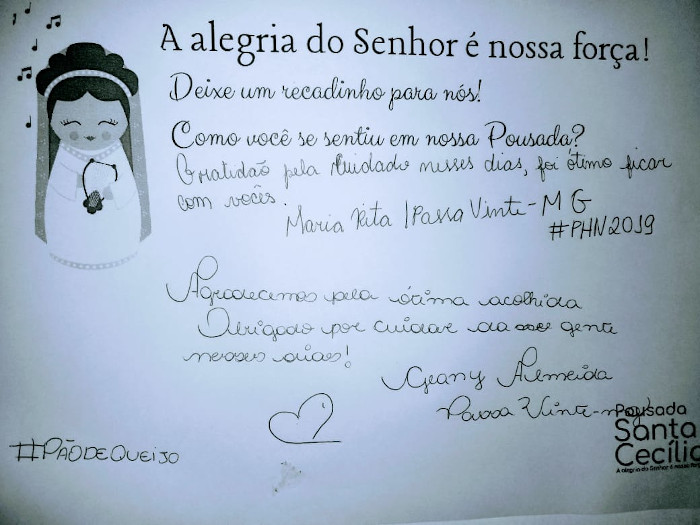 A alegria do Senhor é nossa força!
Deixe um recadinho para nós!
Como você se sentiu em nossa Pousada?
Gratidão pela Cuidado nesses dias, foi ótimo ficar
com vocês.
Maria Rita | Passa Vinte - MG
#PHN2019
Agradecemos pela ótima acolhida
Obrigado por cuidar da gente
nesses dias!
Geany Almeida
Passa Vinte-mg
#PÃODEQUEIJO
Pousada
Santa
Cecília
A alegria do Senhor é nossa